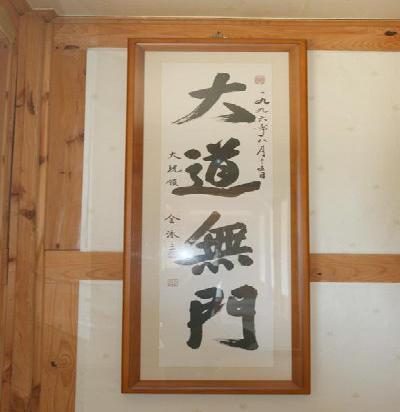 一九九六年八月十五日
大道無門
大統領 金泳三